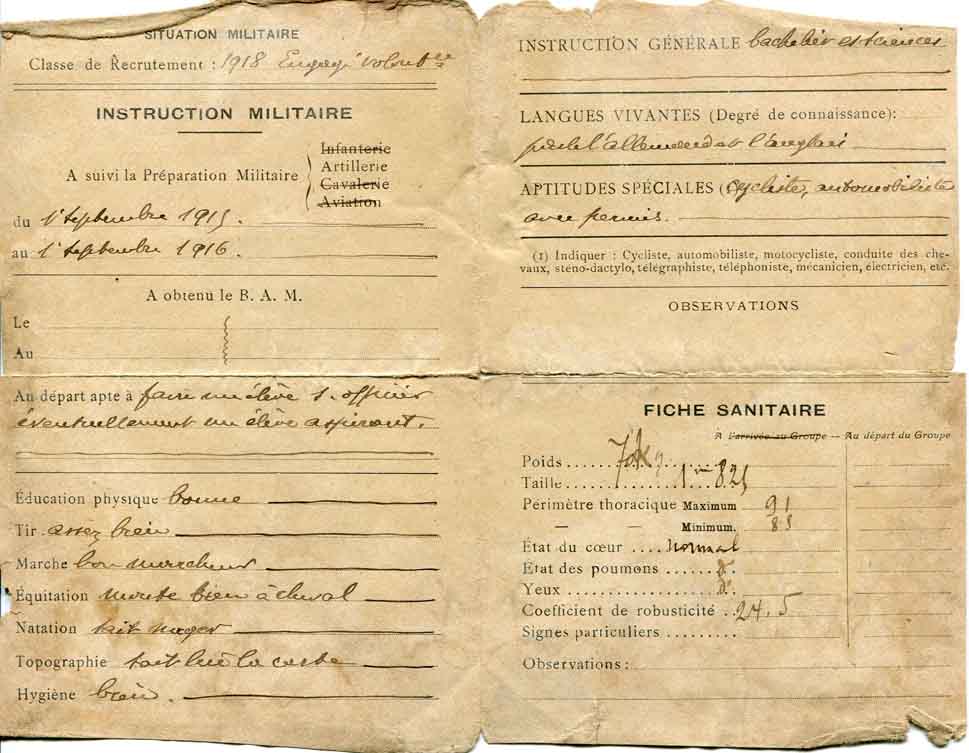 SITUATION MILITAIRE
Classe de Recrutement : 1918 Engagé volontre
INSTRUCTION MILITAIRE
A suivi la Préparation Militaire
Infanterie
Artillerie
Cavalerie
Aviation
du 1er Septembre 1915.
au 1er Septembre 1916.
A obtenu le B. A. M.
Le
Au
Au départ apte à faire un élève s. officier
éventuellement un élève aspirant.
Éducation physique bonne
Tir assez bien
Marche bon marcheur
Équitation monte bien à cheval
Natation sait nager
Topographie sait lire la carte
Hygiène bien.
INSTRUCTION GÉNÉRALE bachelier es sciences
LANGUES VIVANTES (Degré de connaissance):
parle l'allemand et l'anglais
APTITUDES SPÉCIALES (cycliste, automobiliste
avec permis.
(1) Indiquer : Cycliste, automobiliste, motocycliste, conduite des che-
vaux, sténo-dactylo, télégraphiste, téléphoniste, mécanicien, électricien, etc.
OBSERVATIONS
FICHE SANITAIRE
A l'arrivée au Groupe — Au départ du Groupe
Poids
Taille 1m 825
Périmètre thoracique Maximum 91
— — Minimum.
État du cœur normal
État des poumons
Yeux
Coefficient de robusticité 24.5
Signes particuliers
Observations :